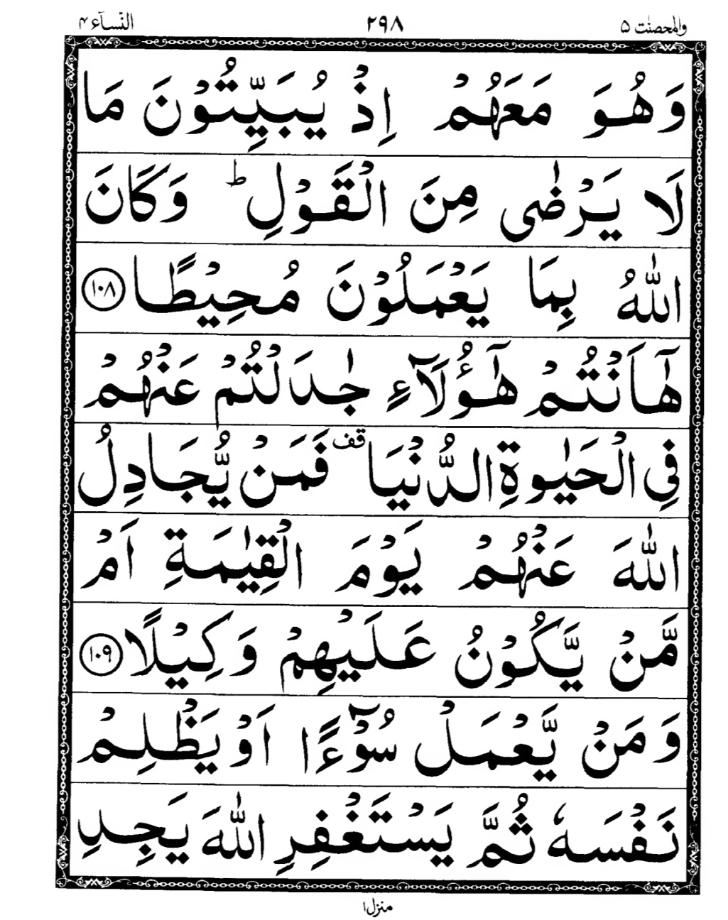 والمحصنت ٥ ٢٩٨ النسآء ٤
وَهُوَ مَعَهُمْ اِذْ يُبَيِّتُوْنَ مَا
لَا يَرْضٰى مِنَ الْقَوْلِ ؕ وَكَانَ
اللّٰهُ بِمَا يَعْمَلُوْنَ مُحِيْطًا ﴿١٠٨﴾
هٰۤاَنْتُمْ هٰۤؤُلَآءِ جٰدَلْتُمْ عَنْهُمْ
فِي الْحَيٰوةِ الدُّنْيَا قف فَمَنْ يُّجَادِلُ
اللّٰهَ عَنْهُمْ يَوْمَ الْقِيٰمَةِ اَمْ
مَّنْ يَّكُوْنُ عَلَيْهِمْ وَكِيْلًا ﴿١٠٩﴾
وَمَنْ يَّعْمَلْ سُوْٓءًا اَوْ يَظْلِمْ
نَفْسَهٗ ثُمَّ يَسْتَغْفِرِ اللّٰهَ يَجِدِ
منزل١